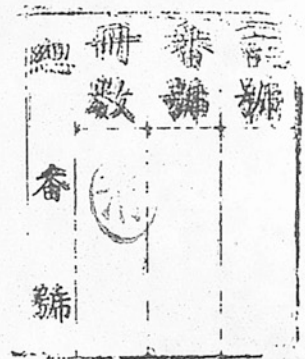 記號
番號
冊数
總番號